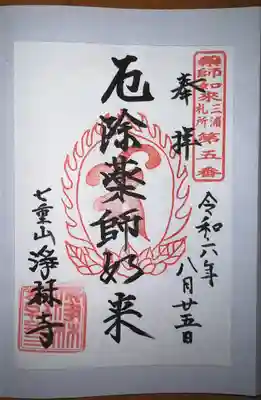 薬師如来三浦札所第五番
奉拝
令和六年八月廿五日
厄除薬師如来
七重山
浄林寺